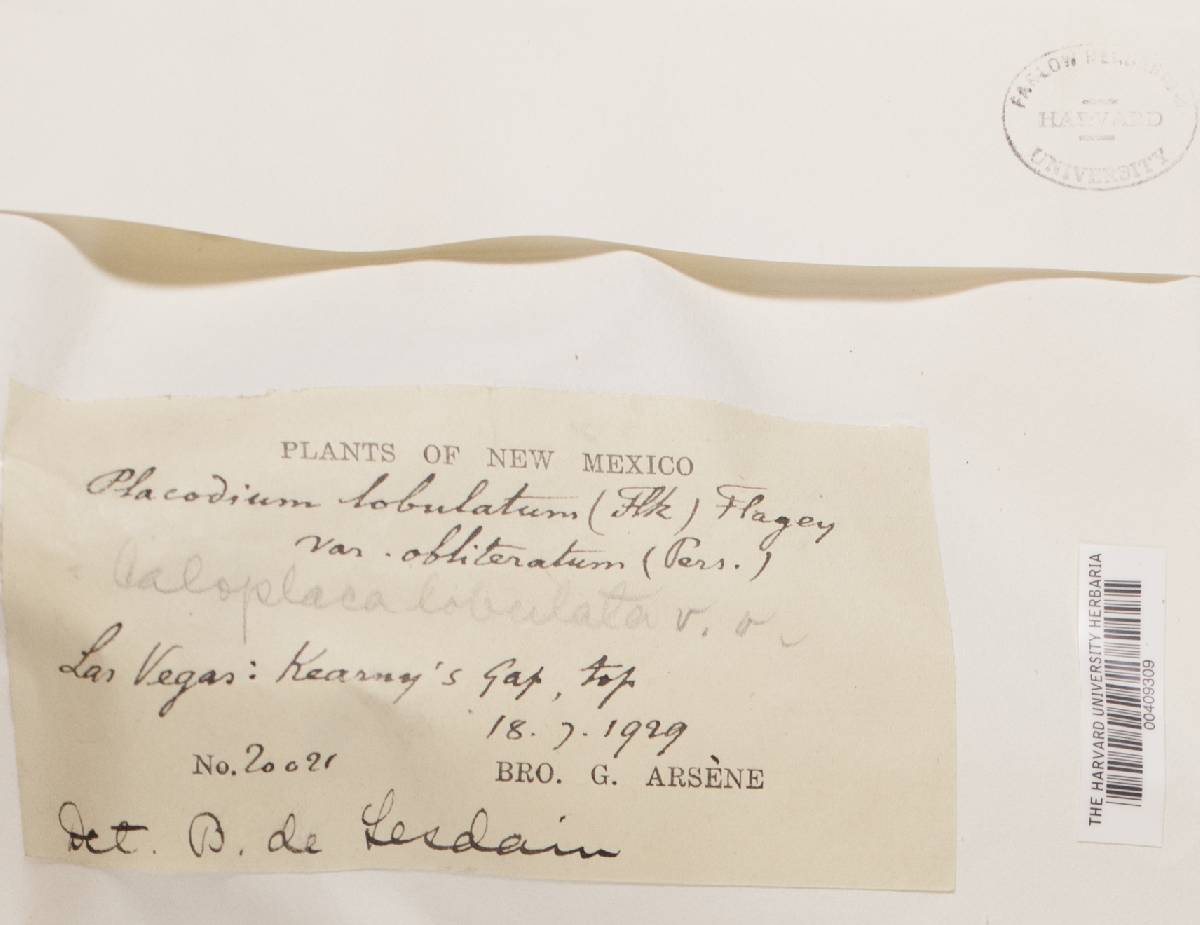 FARLOW HERBARIUM
HARVARD
UNIVERSITY
PLANTS OF NEW MEXICO
Placodium lobulatum (Flk) Flagey
var. obliteratum (Pers.)
Caloplaca lobulata v. o
Las Vegas: Kearny's Gap, top
18. 7. 1929
No. 20021
BRO. G. ARSÈNE
Det. B. de Lesdain
THE HARVARD UNIVERSITY HERBARIA
00409309